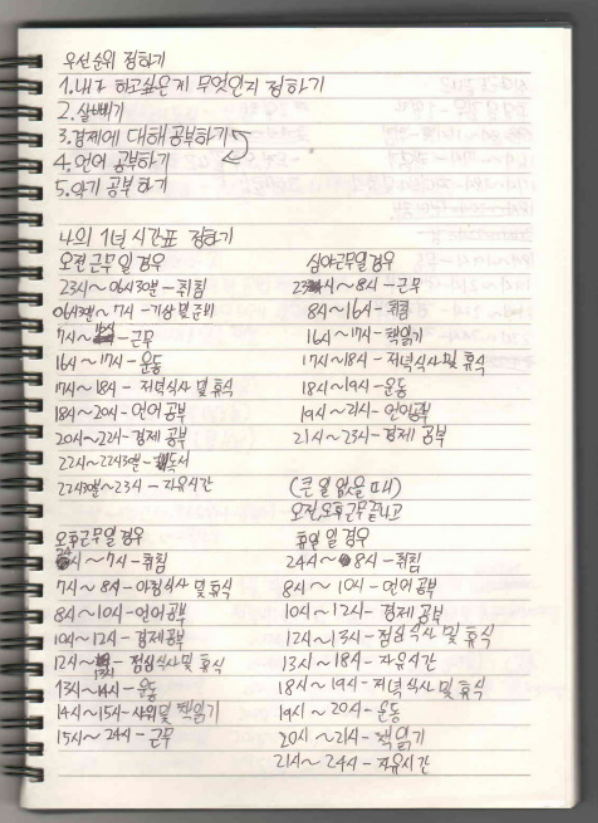 우선순위 정하기
1.내가 하고싶은게 무엇인지 정하기
2.살빼기
3.경제에 대해 공부하기
4.언어 공부하기
5.악기 공부하기
나의 1년 시간표 정하기
오전근무일경우
23시~06시30분-취침
06시30분~7시-기상및준비
7시~ -근무
16시~17시-운동
17시~18시-저녁식사 및 휴식
18시~20시-언어공부
20시~22시-경제 공부
22시~22시30분-독서
22시30분~23시-자유시간
심야근무일경우
23시~8시-근무
8시~16시-취침
16시~17시-책읽기
17시~18시-저녁식사 및 휴식
18시~19시-운동
19시~21시-언어공부
21시~23시-경제 공부
오후근무일경우
24시~7시-취침
7시~8시-아침식사 및 휴식
8시~10시-언어공부
10시~12시-경제공부
12시~13시-점심식사및휴식
13시~14시-운동
14시~15시-샤워및 책읽기
15시~24시-근무
(큰 일 없을 때)
오전,오후근무끝나고
휴일 일경우
24시~8시-취침
8시~10시-언어공부
10시~12시-경제 공부
12시~13시-점심식사 및 휴식
13시~18시-자유시간
18시~19시-저녁식사 및 휴식
19시~20시-운동
20시~21시-책읽기
21시~24시-자유시간